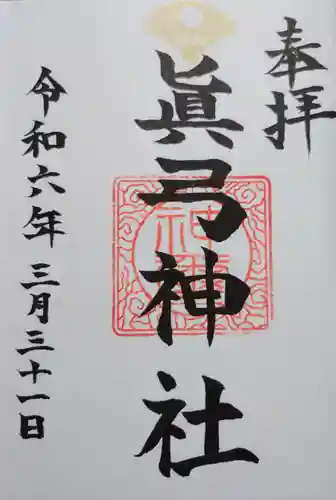 奉拝
眞弓神社
令和六年三月三十一日